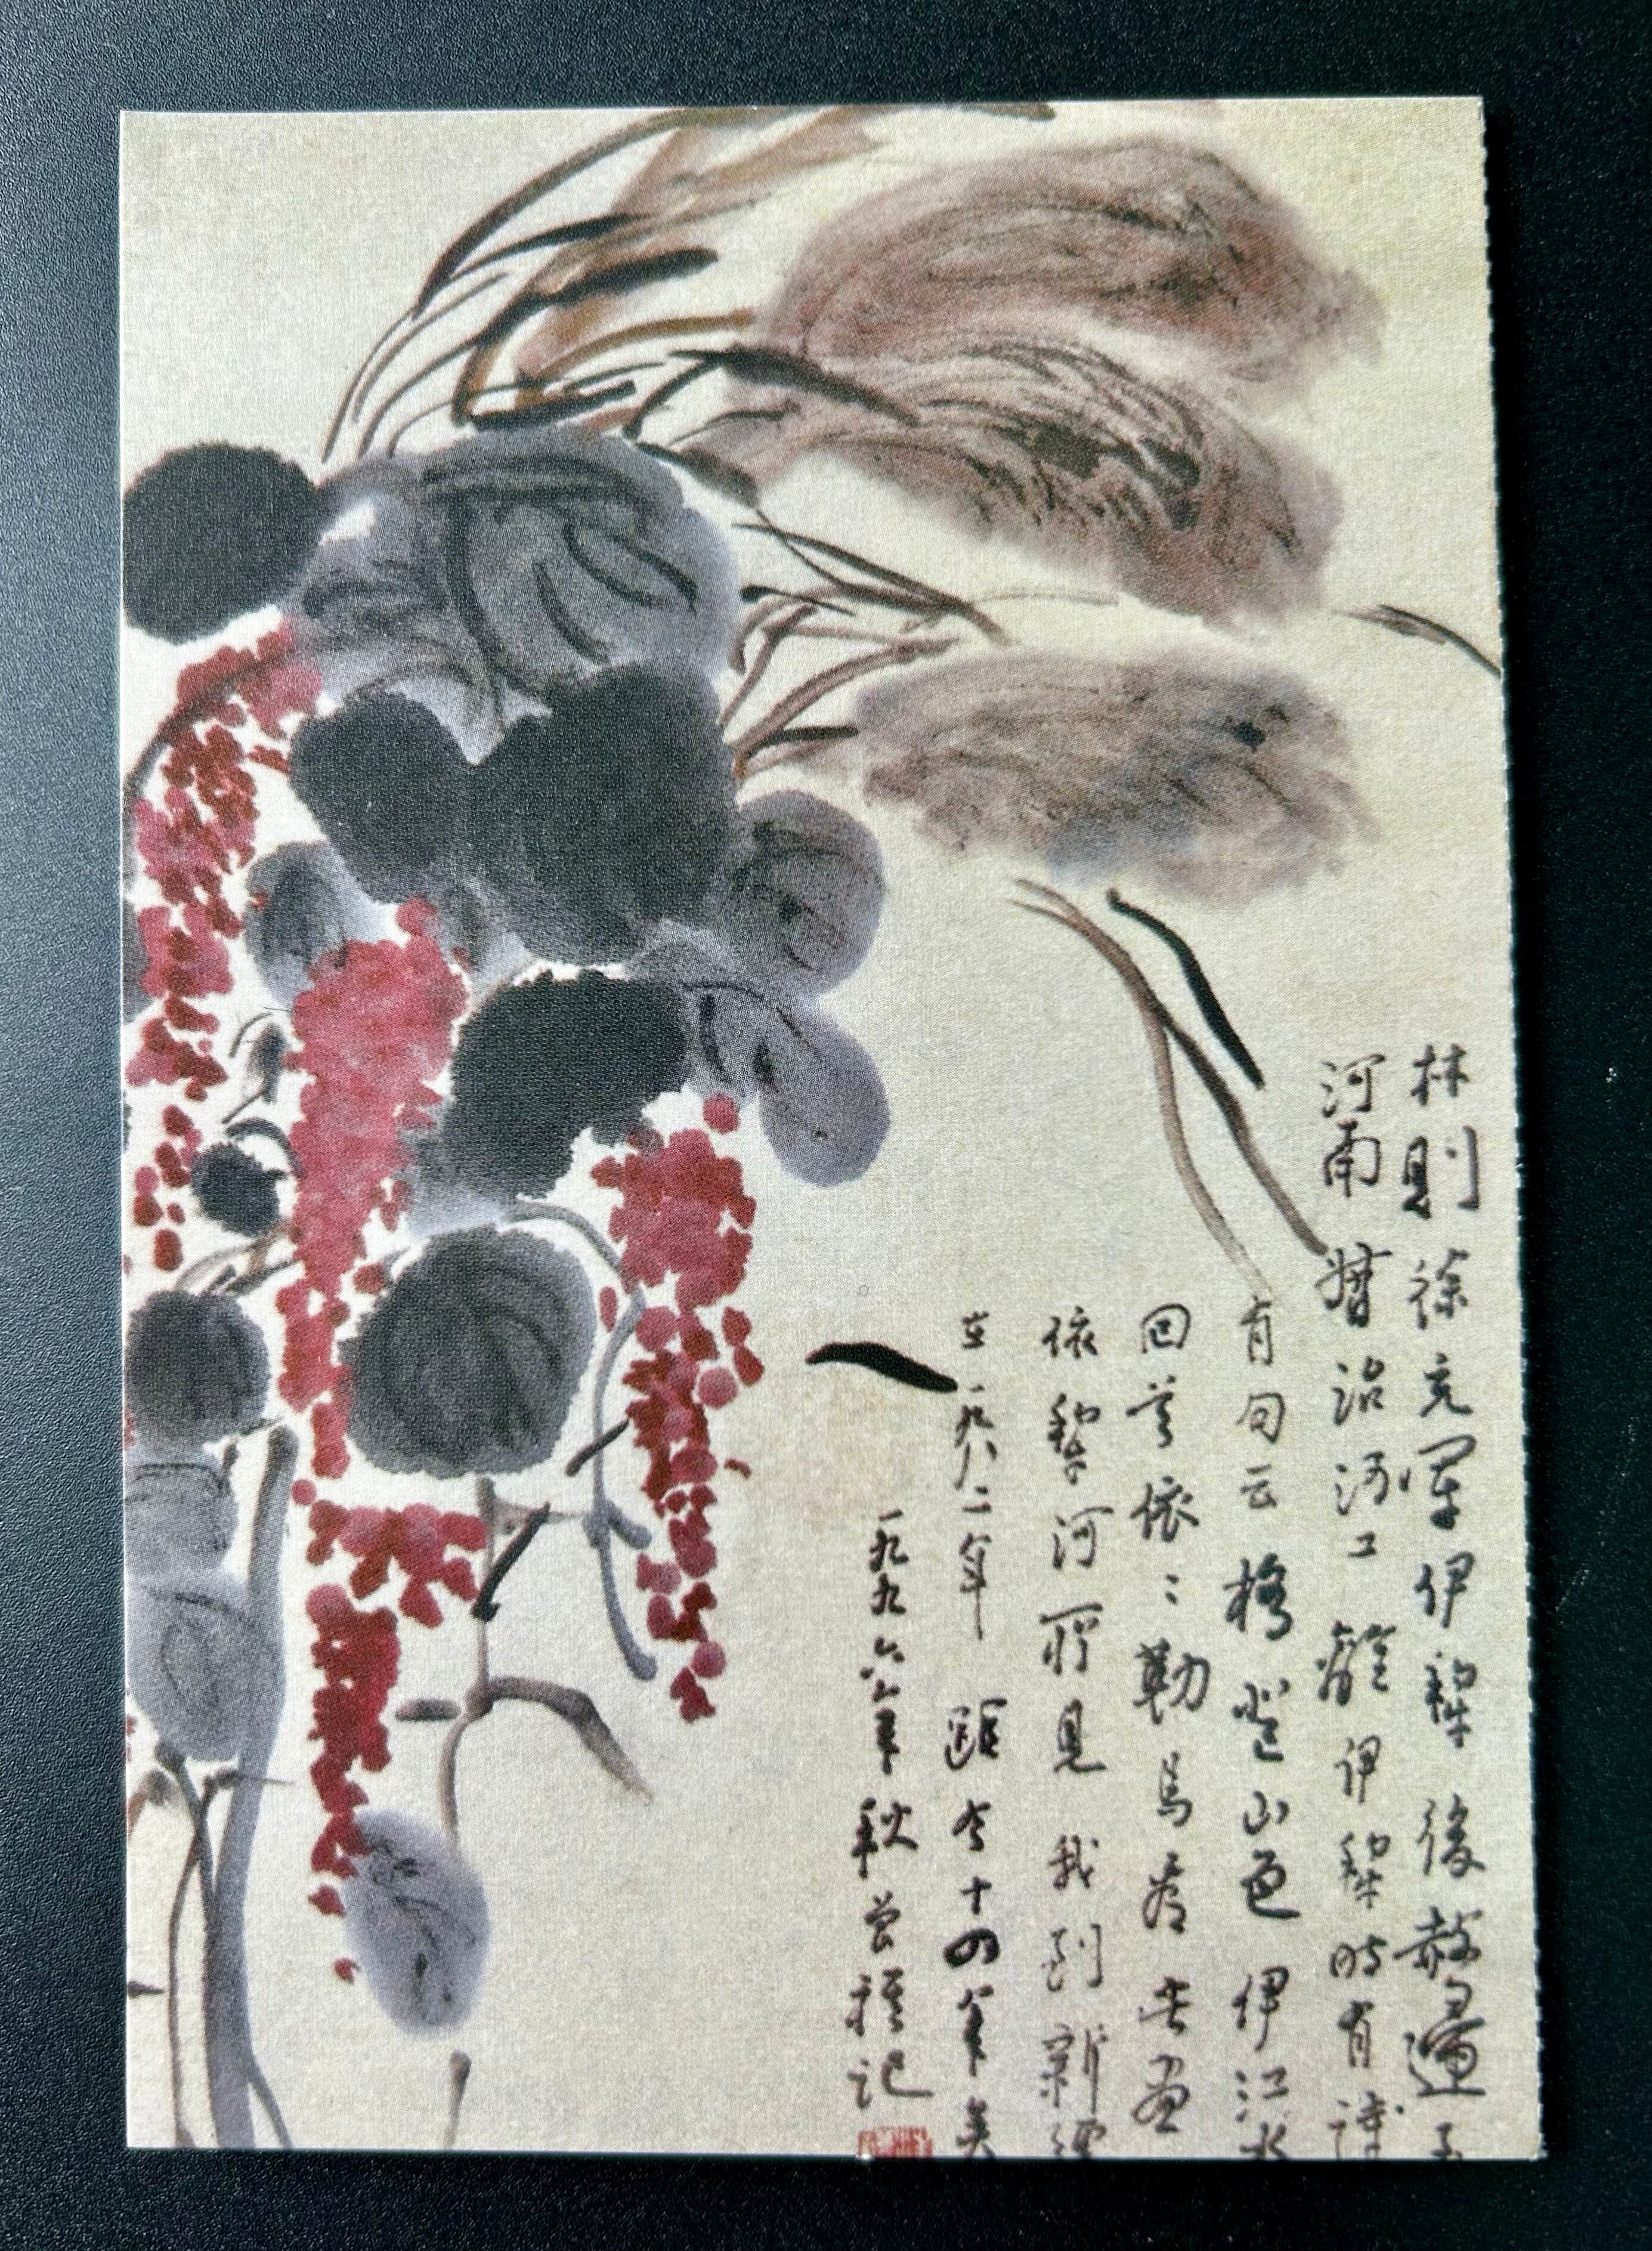 林則徐充軍伊犂後赦還至
河南督治河工離伊犂時有詩
有句云格登山色伊江水
回首依〻勒馬看此畫
依犂河所見我到新疆
在一九八二年距今十四年矣
一九九六年秋曾祺記